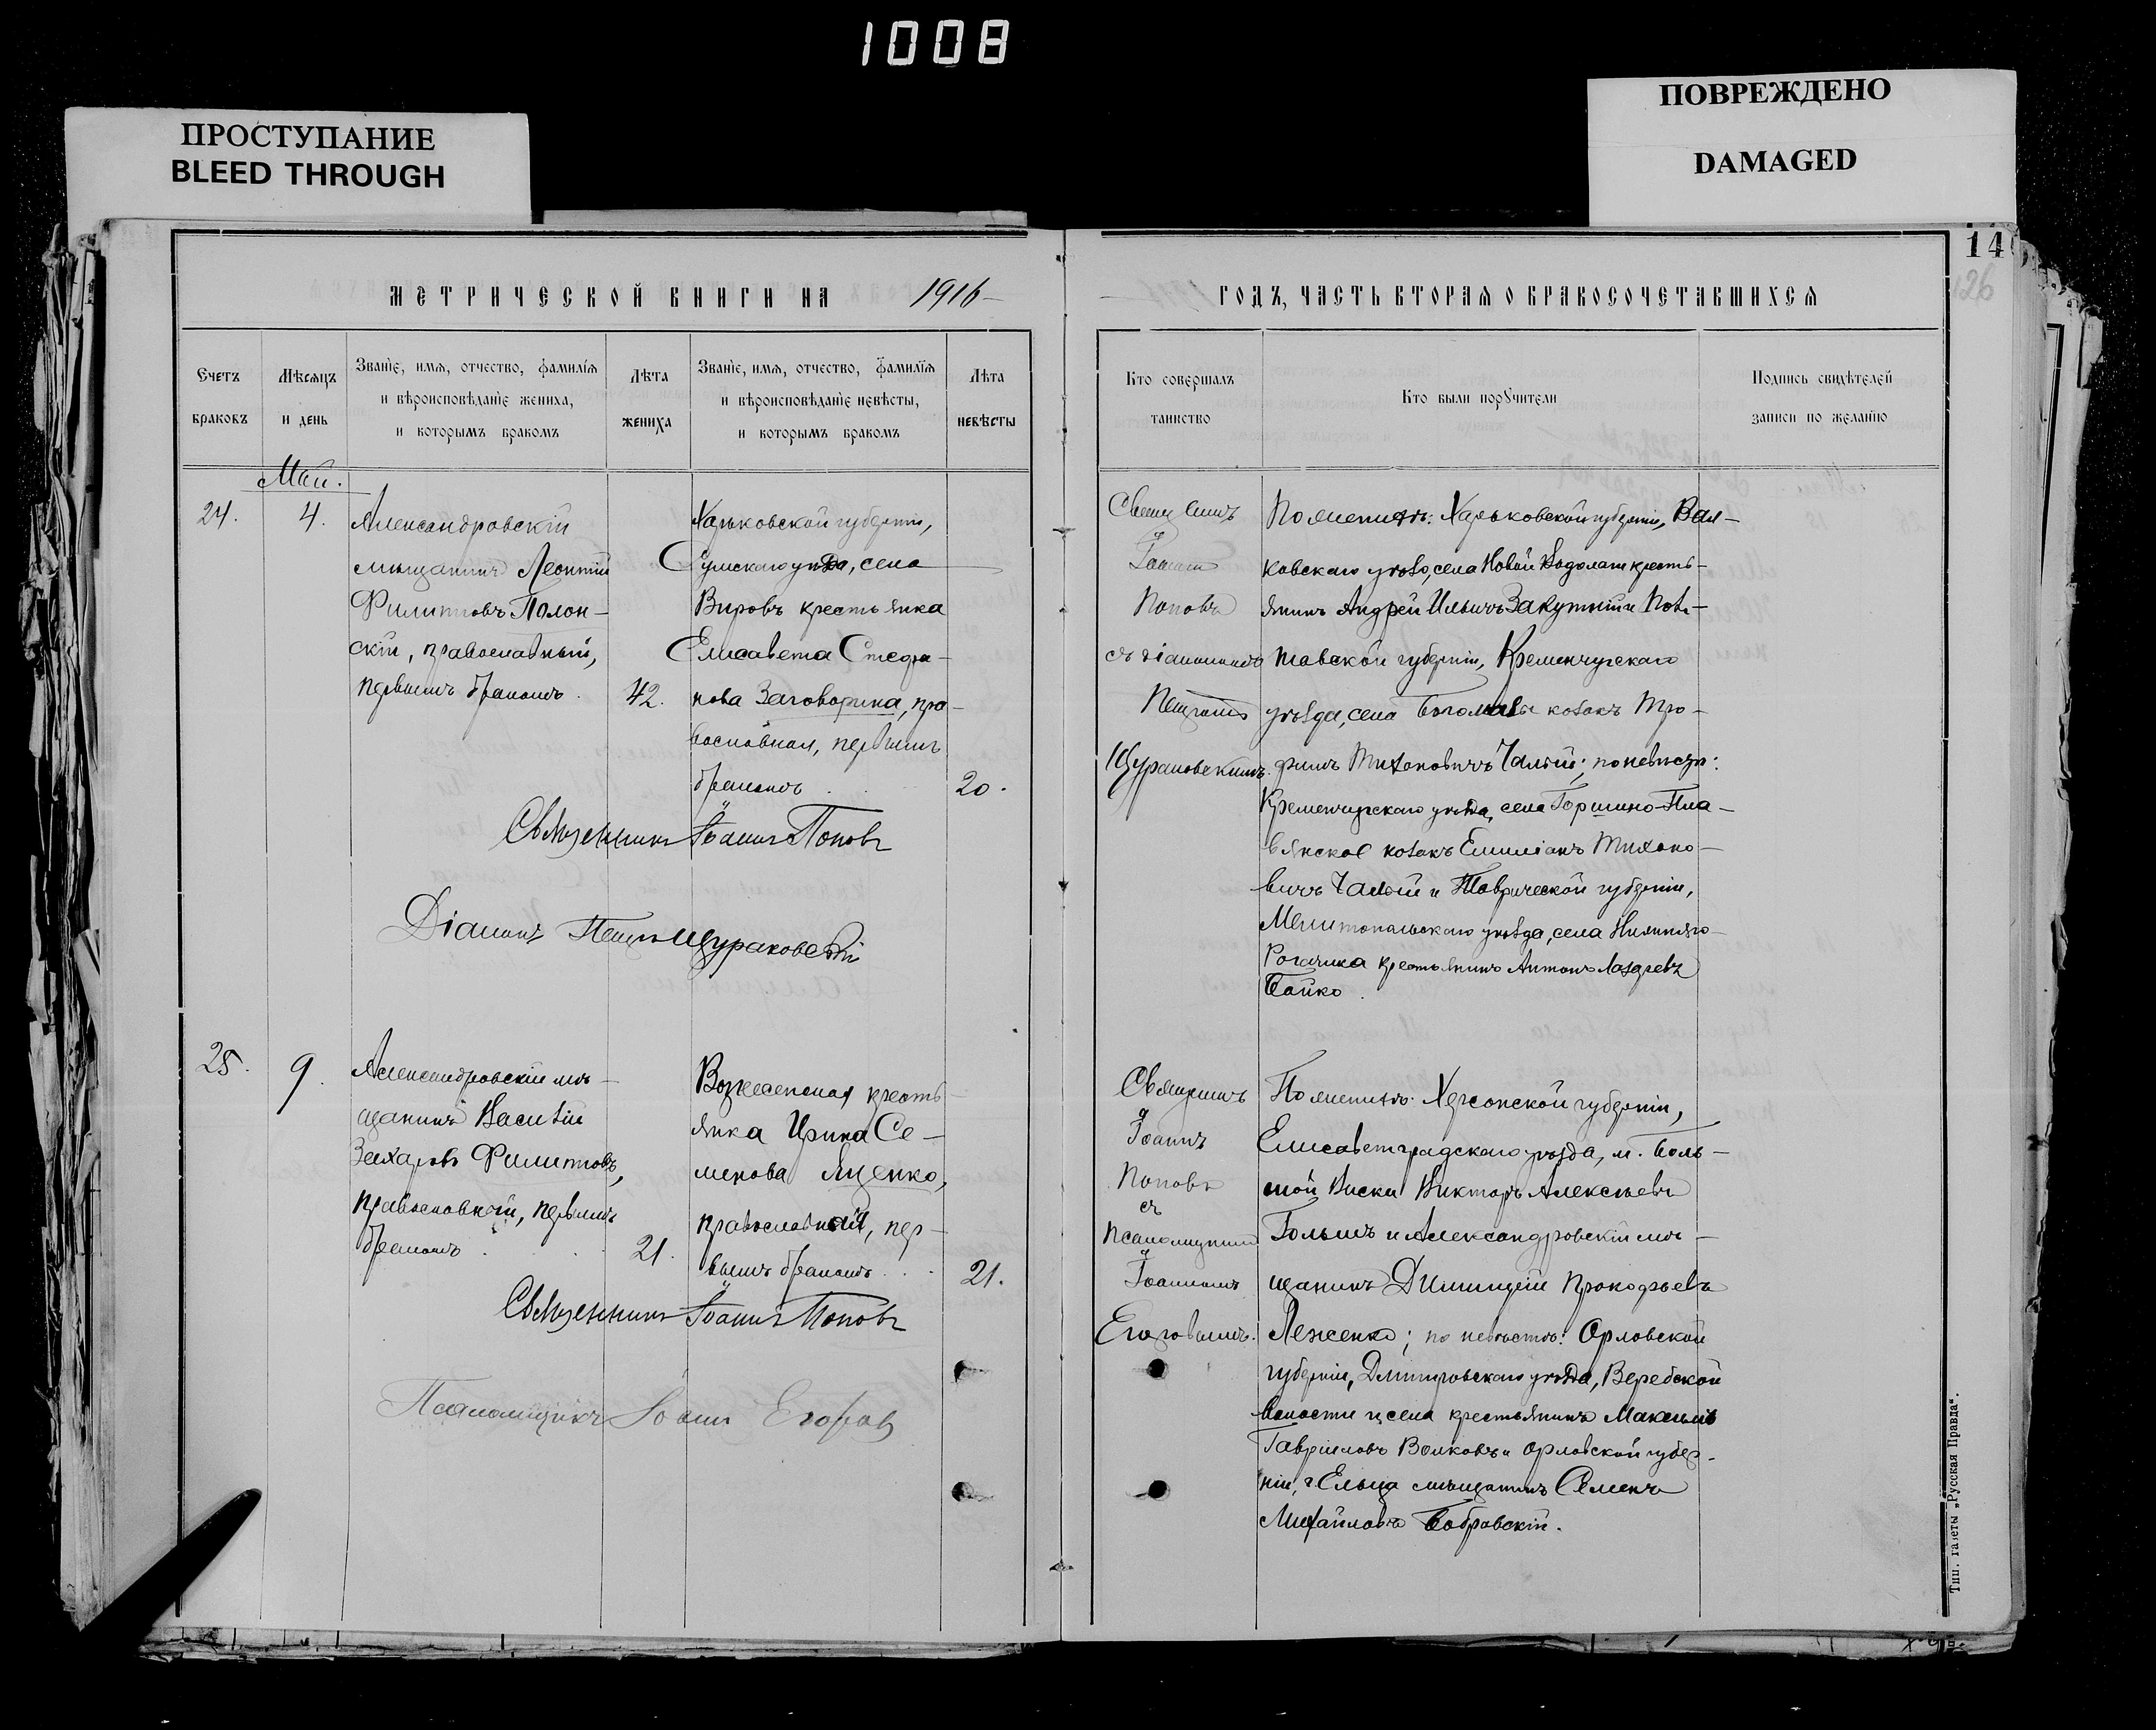 1008
ПРОСТУПАНИЕ
BLEED THROUGH
ПОВРЕЖДЕНО
DAMAGED
14
126
МЕТРИЧЕСКОЙ КНИГИ НА 1916
Счетъ
браковъ
Мѣсяцъ
и день
Званїе, имя, отчество, фамилїя
и вѣроисповѣданїе жениха,
и которымъ бракомъ
Лѣта
жениха
Званїе, имя, отчество, фамилїя
и вѣроисповѣданїе невѣсты,
и которымъ бракомъ
Лѣта
невѣсты
Май.
24.
4.
Александровскій
мѣщанинъ Леонтій
Филипповъ Полон-
скій, православный,
первымъ бракомъ.
42.
Харьковской губерніи,
Сумскаго уѣзда, села
Вировъ крестьянка
Елисавета Стефа-
нова Заговорина, пра-
вославная, первымъ
бракомъ
20.
Священникъ Іоаннъ Поповъ
Діаконъ Петръ Щураковскій
25.
9.
Александровскій мѣ-
щанинъ Василій
Захаровъ Филипповъ,
православный, первымъ
бракомъ
21.
Вознесенская кресть-
янка Ирина Се-
менова Яценко,
православная, пер-
вымъ бракомъ
21.
Священникъ Іоаннъ Поповъ
Псаломщикъ Іоаннъ Егоровъ
ГОДЪ, ЧАСТЬ ВТОРАЯ О БРАКОСОЧЕТАВШИХСЯ
Кто совершалъ
таинство
Кто были порꙋчители
Подпись свидѣтелей
записи по желанїю
Священникъ
Іоаннъ
Поповъ
съ діакономъ
Петромъ
Щураковскимъ.
По женихѣ: Харьковской губерніи, Вал-
ковскаго уѣзда, села Новой Водолаги кресть-
янинъ Андрей Ильичъ Закутній и Пол-
тавской губерніи, Кременчугскаго
уѣзда, села козакъ Тро-
фимъ Тихоновичъ Чалый; по невѣстѣ:
Кременчугскаго уѣзда, села Горишно-Пла-
вянское козакъ Емиліанъ Тихоно-
вичъ Чалый и Таврической губерніи,
Мелитопольскаго уѣзда, села Нижняго
Рогачика крестьянинъ Антонъ
Бойко.
Священникъ
Іоаннъ
Поповъ
съ
псаломщикомъ
Іоанномъ
Егоровымъ.
По женихѣ: Херсонской губерніи,
Елисаветградскаго уѣзда, м. Боль-
шой Виски Викторъ Алексѣевъ
Голымъ и Александровскій мѣ-
щанинъ Димитрій Прокофьевъ
Леженко; по невѣстѣ: Орловской
губерніи, Дмитровскаго уѣзда, Веребской
волости и села крестьянинъ Максимъ
Гавріиловъ Волковъ и Орловской губер-
ніи, г. Ельца мѣщанинъ Семенъ
Михайловъ Бобровскій.
Тип. газеты „Русская Правда“.